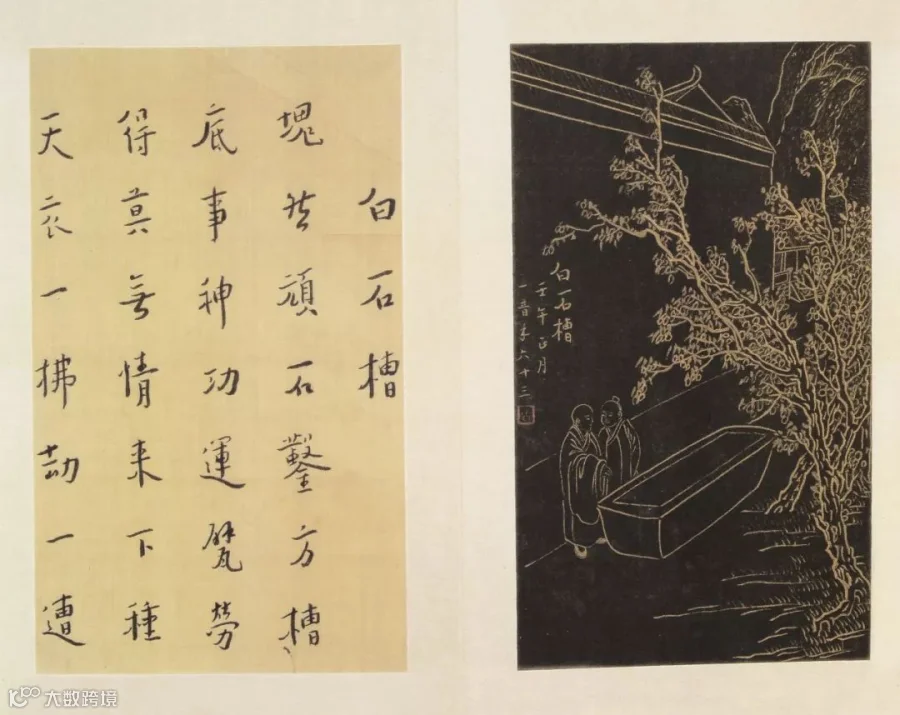 白石槽
塊然頑石鑿方槽
底事神功運甓勞
得莫無情来下種
天衣一拂劫一遭
白石槽
壬午正月
一音年六十三
大数跨境